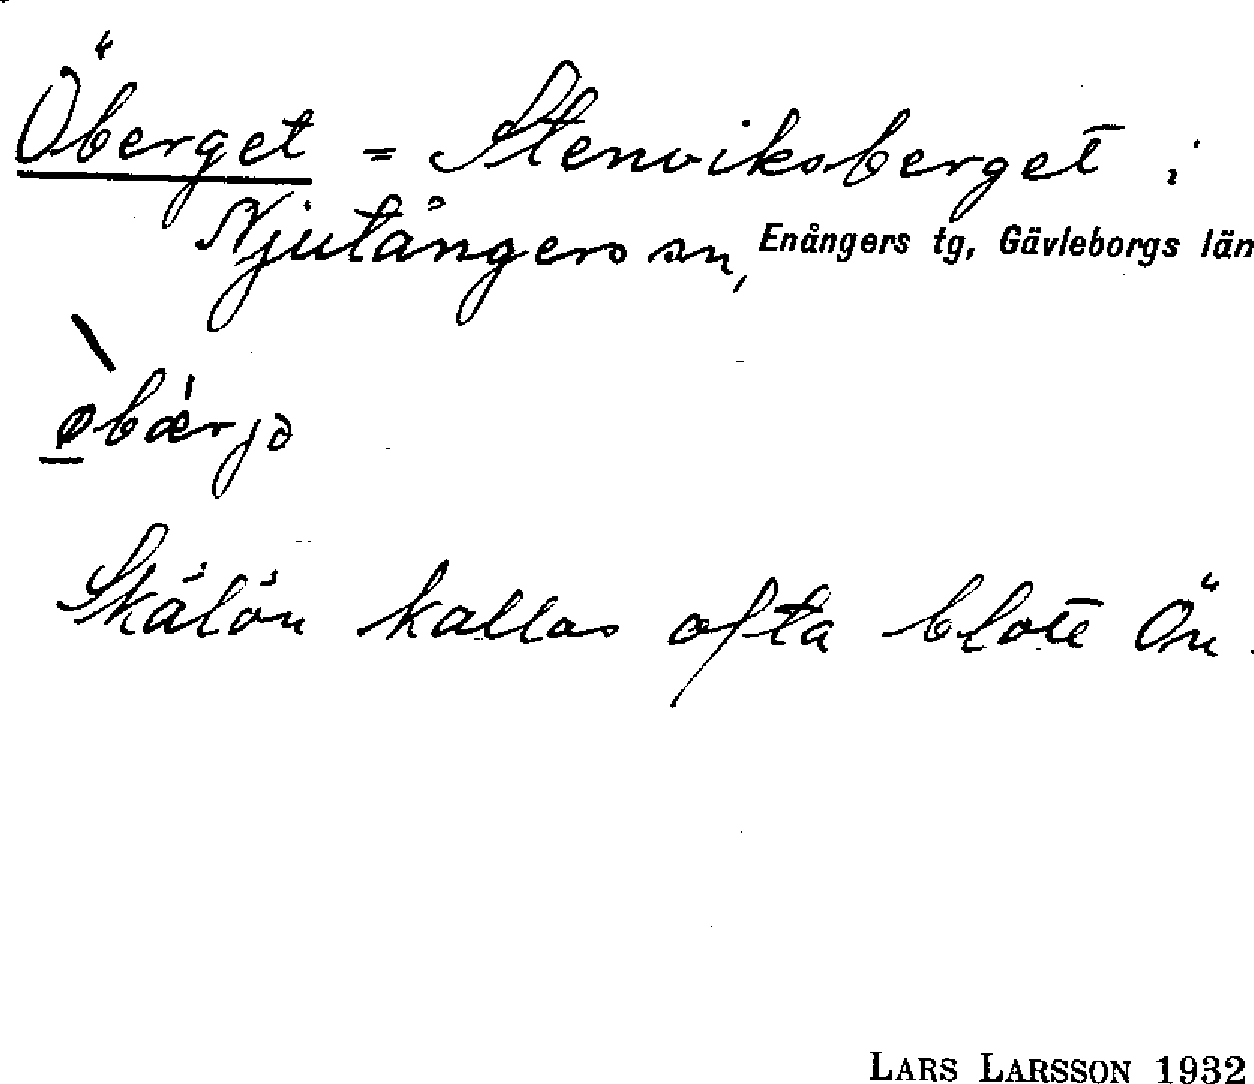 Öberget = Stenviksberget i
Njutångers sn, Enångers tg, Gävleborgs län
øbærjə
Skålön kallas ofta blott Ön.
LARS LARSSON 1932